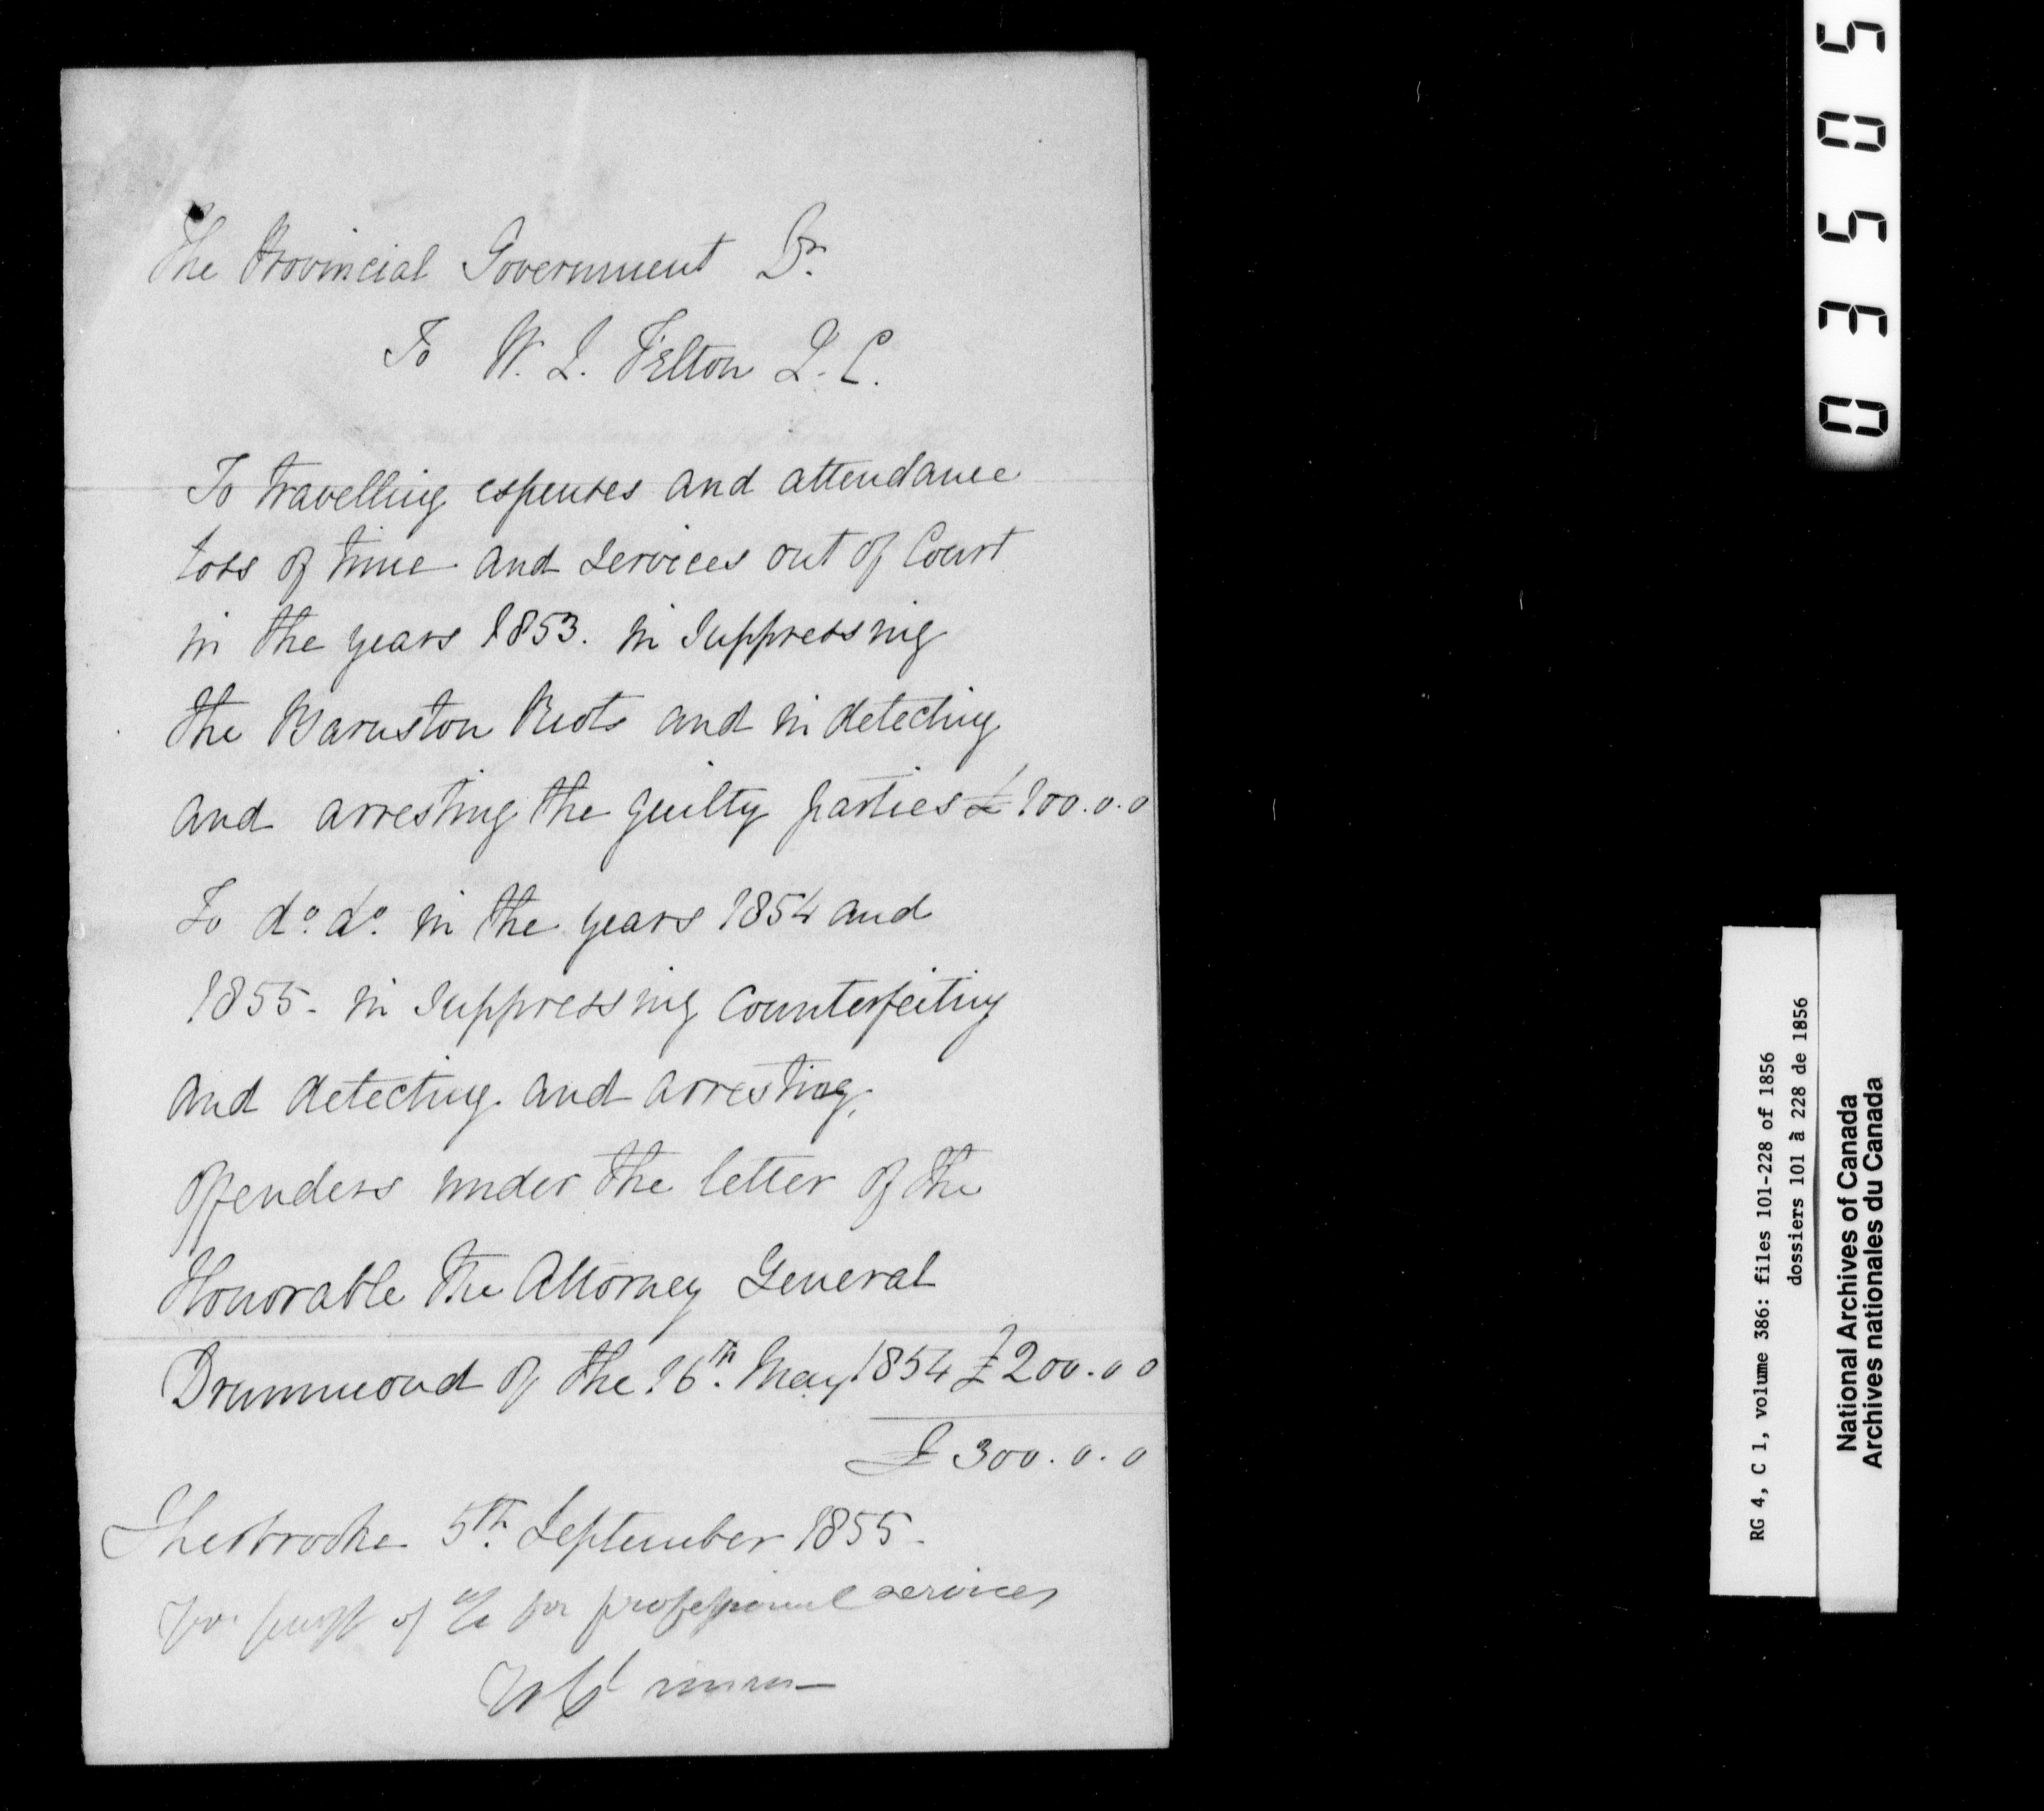 The Provincial Government Dr.
To W. L. Felton Q. C.
To travelling expenses and attendance
loss of time and services out of Court
in the years 1853. in suppressing
the Barnston Riots and in detecting
and arresting the guilty parties £100.0.0
To do. do. in the years 1854 and
1855 - in suppressing Counterfeiting
and detecting and arresting
offenders under the letter of the
Honorable the Attorney General
Drummond of the 16th. May 1854 £200.0 0
£300.0.0
Sherbrooke 5th. September 1855.
of for professional services
03505
RG 4, C 1, volume 386: files 101-228 of 1856
dossiers 101 à 228 de 1856
National Archives of Canada
Archives nationales du Canada